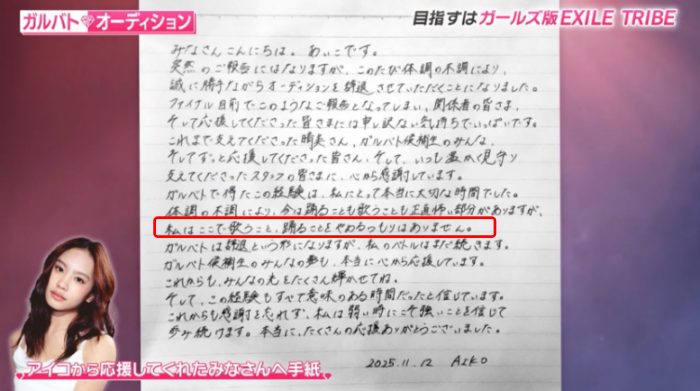 ガルバト♥オーディション
目指すはガールズ版EXILE TRIBE
みなさんこんにちは。あいこです。
突然のご報告にはなりますが、このたび体調の不調により、
誠に勝手ながらオーディションを辞退させていただくことになりました。
ファイナル目前でこのようなご報告となってしまい、関係者の皆さま、
そして応援してくださった皆さまには申し訳ない気持ちでいっぱいです。
これまで支えてくださった晴美さん、ガルバト候補生のみんな、
そしてずっと応援してくださった皆さん、そして、いつも温かく見守り
支えてくださったスタッフの皆さまに、心から感謝しています。
ガルバトで得たこの経験は、私にとって本当に大切な時間でした。
体調の不調により、今は踊ることも歌うことも正直怖い部分がありますが、
私はここで歌うこと、踊ることをやめるつもりはありません。
ガルバトは辞退という形になりますが、私のバトルはまだ続きます。
ガルバト候補生のみんなの夢も、本当に心から応援しています。
これからも、みんなの光をたくさん輝かせてね。
そして、この経験もすべて意味のある時間だったと信じています。
これからも感謝を忘れず、私は弱い時にこそ強いことを信じて
歩み続けます。本当に、たくさんの応援ありがとうございました。
2025.11.12 AIKO
アイコから応援してくれたみなさんへ手紙